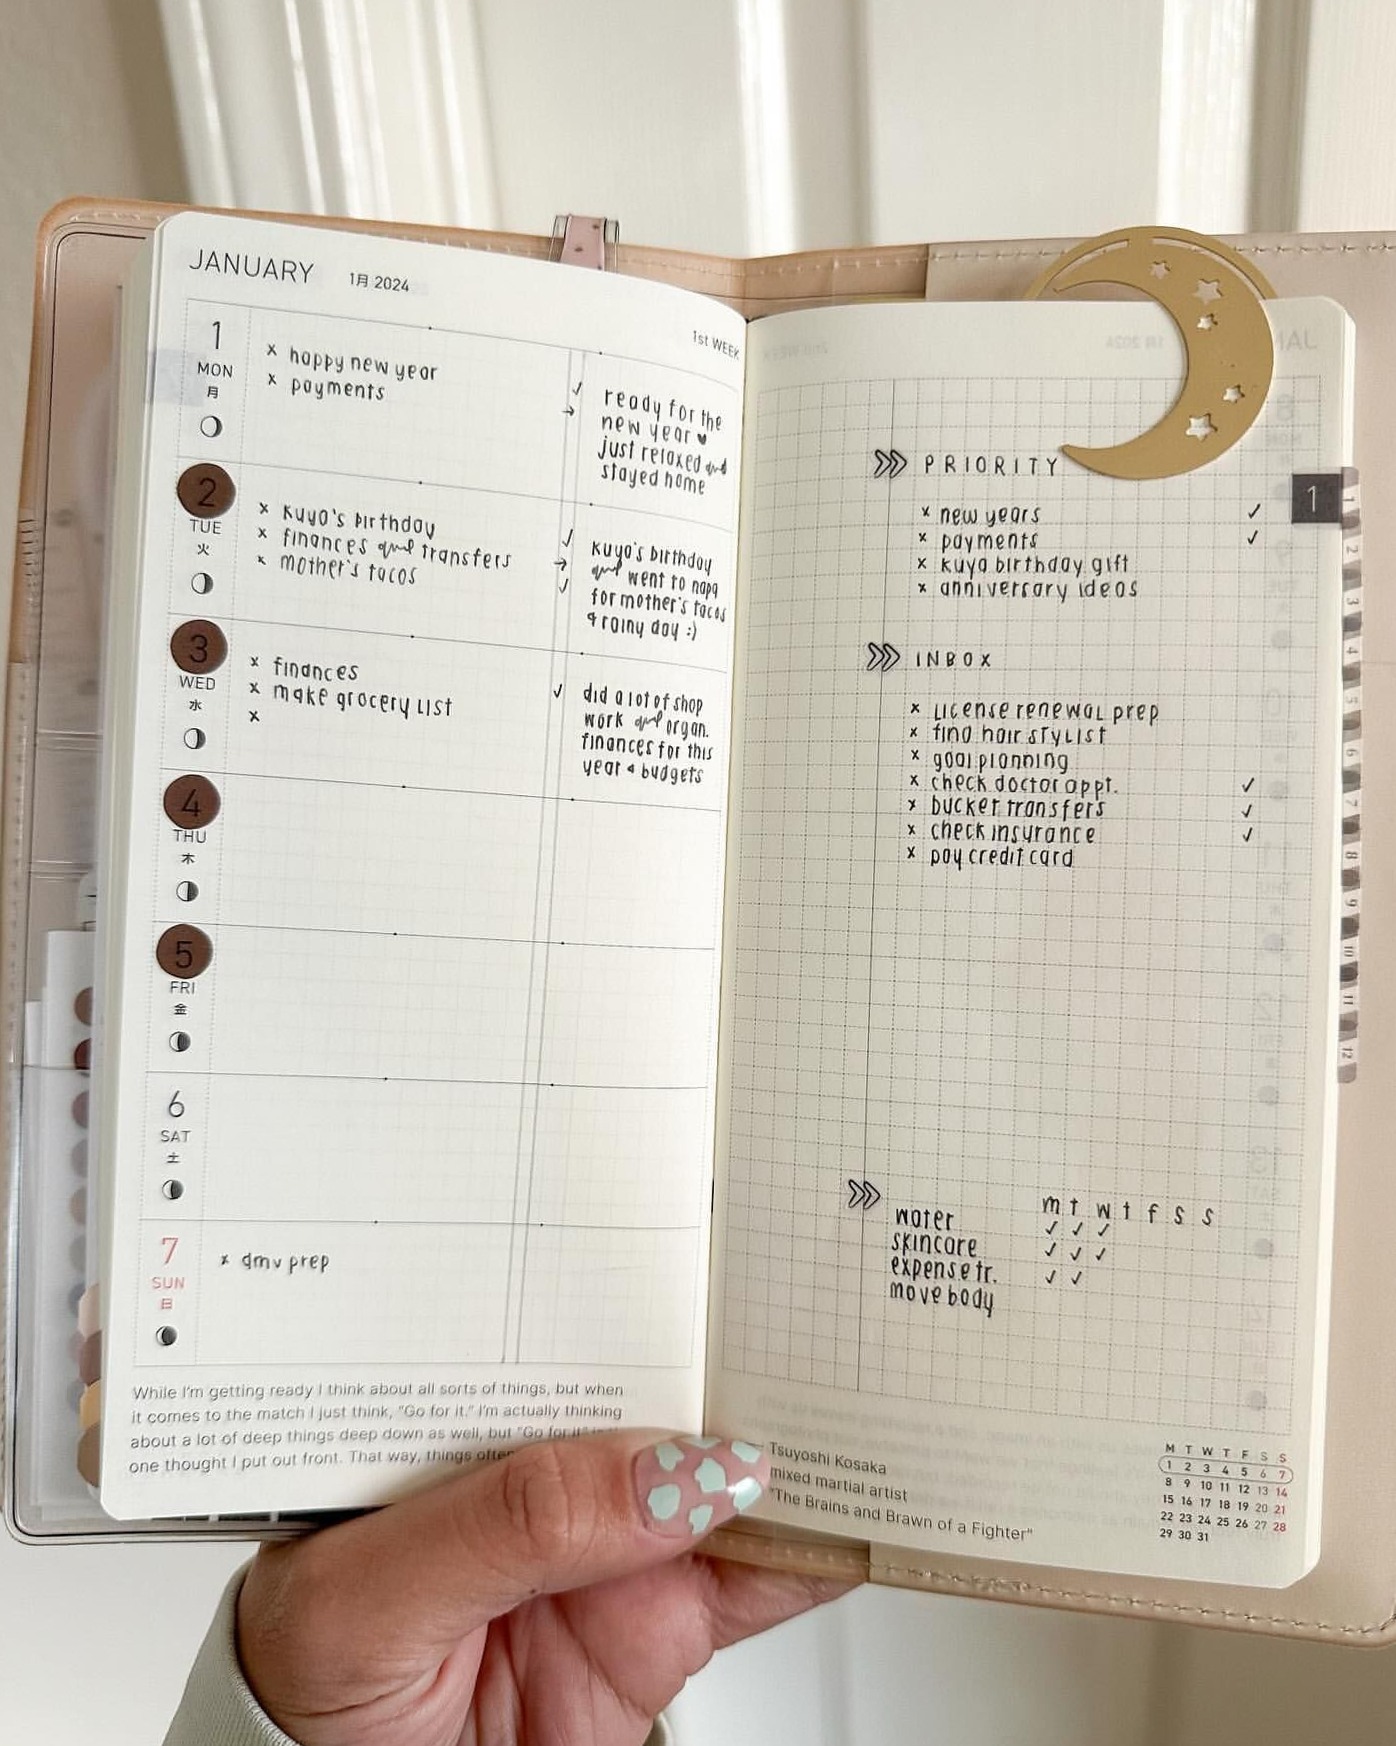 JANUARY 1月 2024
1st WEEK
1
MON
月
x happy new year
x payments
✓
→
ready for the
new year ♥
just relaxed and
stayed home
2
TUE
火
x kuya's birthday
x finances and transfers
x mother's tacos
✓
→
✓
kuya's birthday
and went to napa
for mother's tacos
& rainy day :)
3
WED
水
x finances
x make grocery list
x
✓
did a lot of shop
work and organ.
finances for this
year & budgets
4
THU
木
5
FRI
金
6
SAT
土
7
SUN
日
x dmv prep
While I'm getting ready I think about all sorts of things, but when
it comes to the match I just think, "Go for it." I'm actually thinking
about a lot of deep things deep down as well, but "Go for it"
one thought I put out front. That way, things often
PRIORITY
x new years ✓
x payments ✓
x kuya birthday gift
x anniversary ideas
INBOX
x license renewal prep
x find hair stylist
x goal planning
x check doctor appt. ✓
x bucket transfers ✓
x check insurance ✓
x pay credit card
m t w t f s s
water ✓ ✓ ✓
skincare ✓ ✓ ✓
expense tr. ✓ ✓
move body
Tsuyoshi Kosaka
mixed martial artist
"The Brains and Brawn of a Fighter"
M T W T F S S
1 2 3 4 5 6 7
8 9 10 11 12 13 14
15 16 17 18 19 20 21
22 23 24 25 26 27 28
29 30 31
1
1
2
3
4
5
6
7
8
9
10
11
12